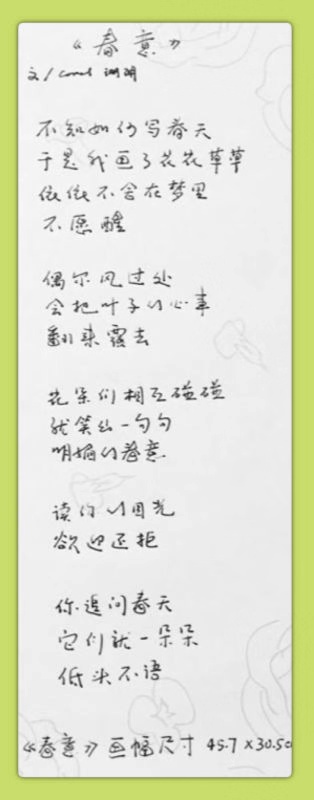 《春意》
文/Coral 珊瑚
不知如何写春天
于是我画了花花草草
依依不舍在梦里
不愿醒
偶尔风过处
会把叶子的心事
翻来覆去
花朵们相互碰碰
就笑出一句句
明媚的春意
读你的目光
欲迎还拒
你追问春天
它们就一朵朵
低头不语
《春意》画幅尺寸 45.7×30.5c